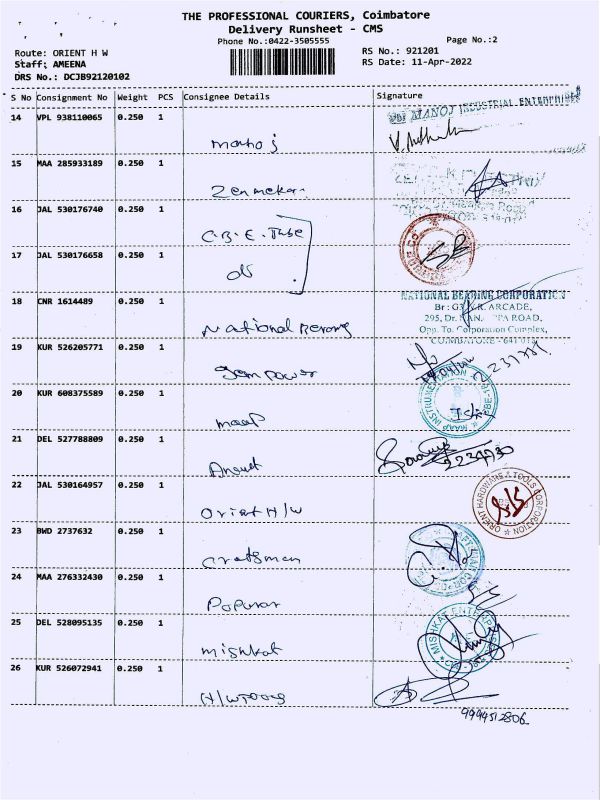 THE PROFESSIONAL COURIERS, Coimbatore
Delivery Runsheet - CMS
Phone No.:0422-3505555
Page No.:2
Route: ORIENT H W
RS No.: 921201
Staff: AMEENA
RS Date: 11-Apr-2022
DRS No.: DCJB92120102
S No Consignment No Weight PCS Consignee Details Signature
14 VPL 938110065 0.250 1
MANOJ INDUSTRIAL ENTERPRISES
manoj
15 MAA 285933189 0.250 1
16 JAL 530176740 0.250 1
C.B.E. Tube
17 JAL 530176658 0.250 1
18 CNR 1614489 0.250 1
NATIONAL BEARING CORPORATION
ARCADE,
295, Dr. ROAD,
Opp. To. Corporation Complex,
COIMBATORE - 641 018
National
19 KUR 526205771 0.250 1
Gem power
20 KUR 608375589 0.250 1
MAAP INSTRUMENTATION
maap
21 DEL 527788809 0.250 1
22 JAL 530164957 0.250 1
ORIENT HARDWARE & TOOLS CORPORATION
Orient H/W
23 BWD 2737632 0.250 1
Craftsman
24 MAA 276332430 0.250 1
Popular
25 DEL 528095135 0.250 1
MISHKAT ENTERPRISES
mishkat
26 KUR 526072941 0.250 1
9994512806